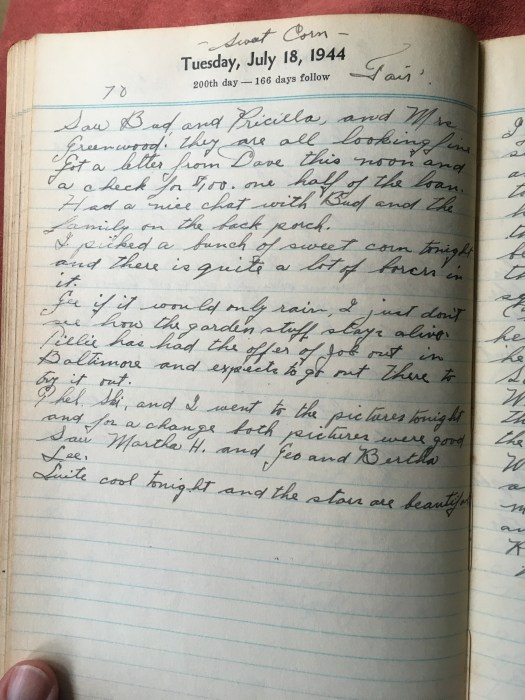 - Swat Corn -
Tuesday, July 18, 1944
200th day — 166 days follow
Fair.
70
Saw Bud and Pricilla, and Mrs
Greenwood. they are all looking fine
Got a letter from Dave this noon and
a check for $1,00. one half of the loan.
Had a nice chat with Bud and the
family on the back porch.
I picked a bunch of sweet corn tonight
and there is quite a lot of borers in
it.
Gee if it would only rain, I just don't
see how the garden stuff stays alive.
Tillie has had the offer of Job out in
Baltimore and expects to go out there to
try it out.
Phel, Ski, and I went to the pictures tonight
and for a change both pictures were good
Saw Martha H. and Geo and Bertha
Lee.
Quite cool tonight and the stars are beautiful